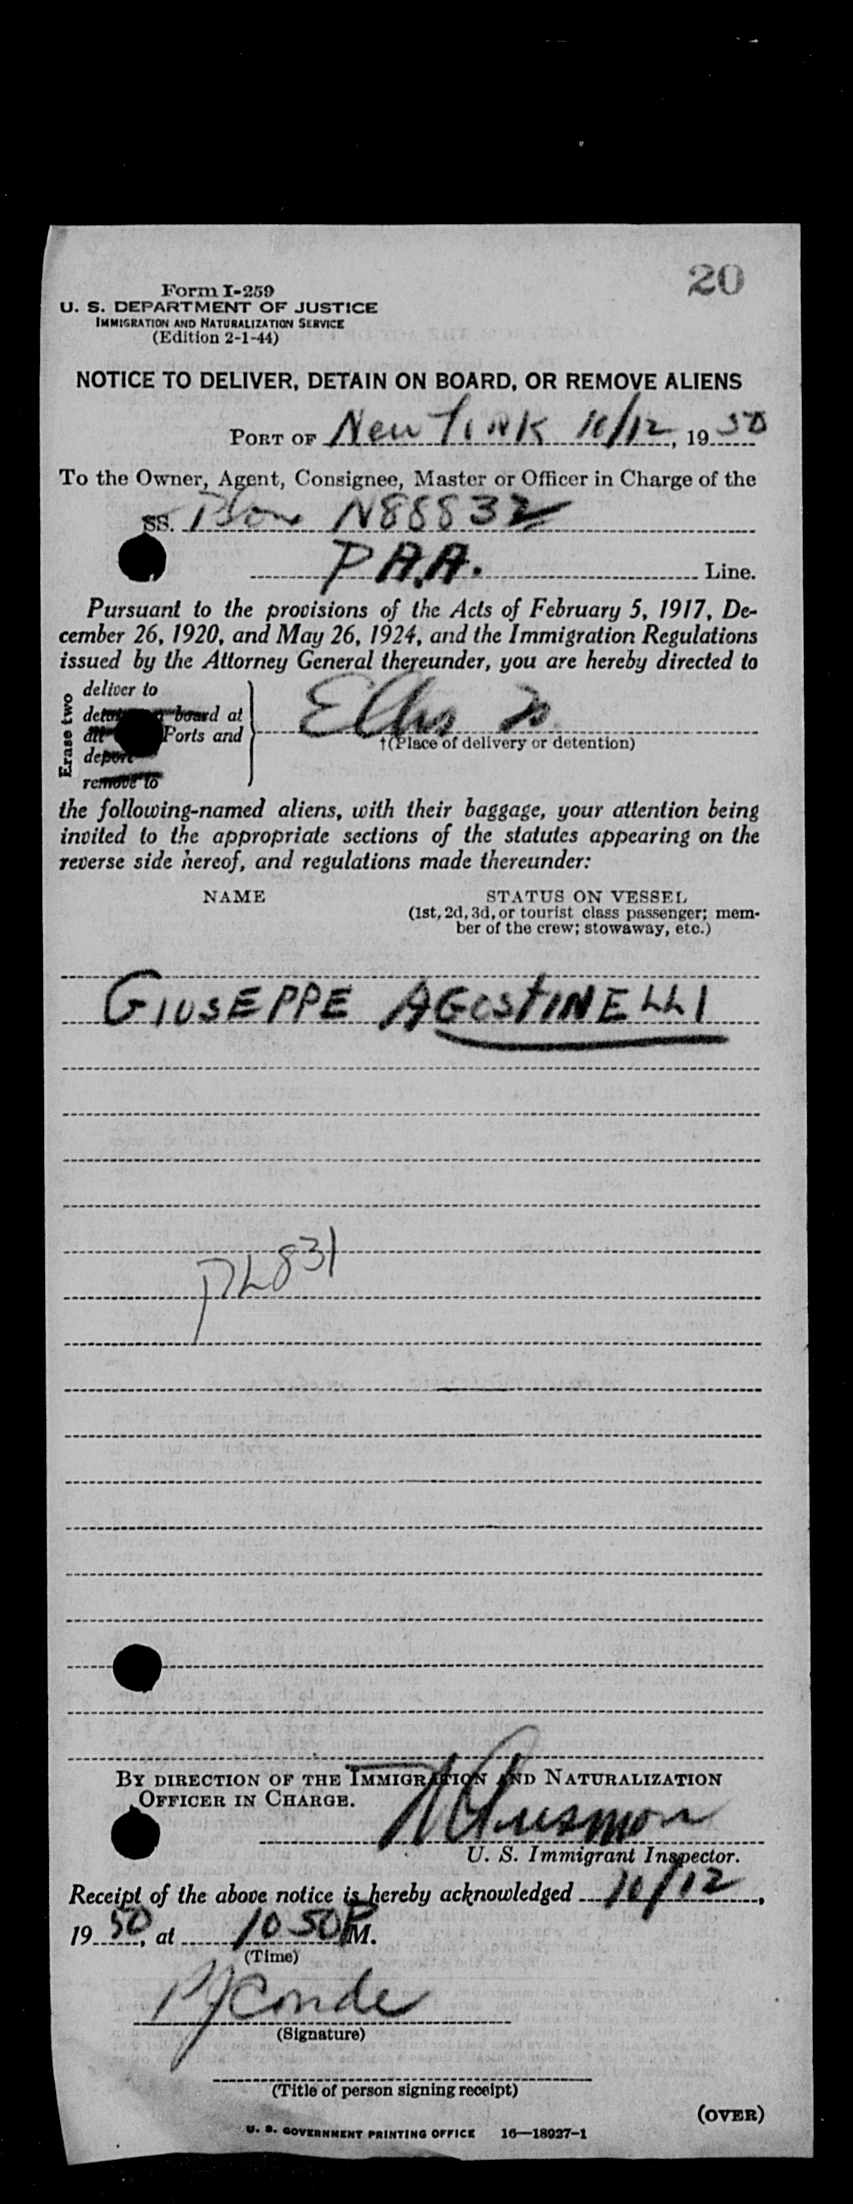 20
Form I-259
U. S. DEPARTMENT OF JUSTICE
IMMIGRATION AND NATURALIZATION SERVICE
(Edition 2-1-44)
NOTICE TO DELIVER, DETAIN ON BOARD, OR REMOVE ALIENS
PORT OF New York 10/12, 19 50
To the Owner, Agent, Consignee, Master or Officer in Charge of the
SS. Plane N88832
P.A.A. Line.
Pursuant to the provisions of the Acts of February 5, 1917, De-
cember 26, 1920, and May 26, 1924, and the Immigration Regulations
issued by the Attorney General thereunder, you are hereby directed to
Erase two
deliver to
board at
Ports and
deport
remove to
Ellis Is
†(Place of delivery or detention)
the following-named aliens, with their baggage, your attention being
invited to the appropriate sections of the statutes appearing on the
reverse side hereof, and regulations made thereunder:
NAME STATUS ON VESSEL
(1st, 2d, 3d, or tourist class passenger; mem-
ber of the crew; stowaway, etc.)
GIUSEPPE AGOSTINELLI
PL831
BY DIRECTION OF THE IMMIGRATION AND NATURALIZATION
OFFICER IN CHARGE.
U. S. Immigrant Inspector.
Receipt of the above notice is hereby acknowledged 10/12,
19 50, at 10 50 P M.
(Time)
PJ Conde
(Signature)
(Title of person signing receipt)
(OVER)
U. S. GOVERNMENT PRINTING OFFICE 16—18927-1